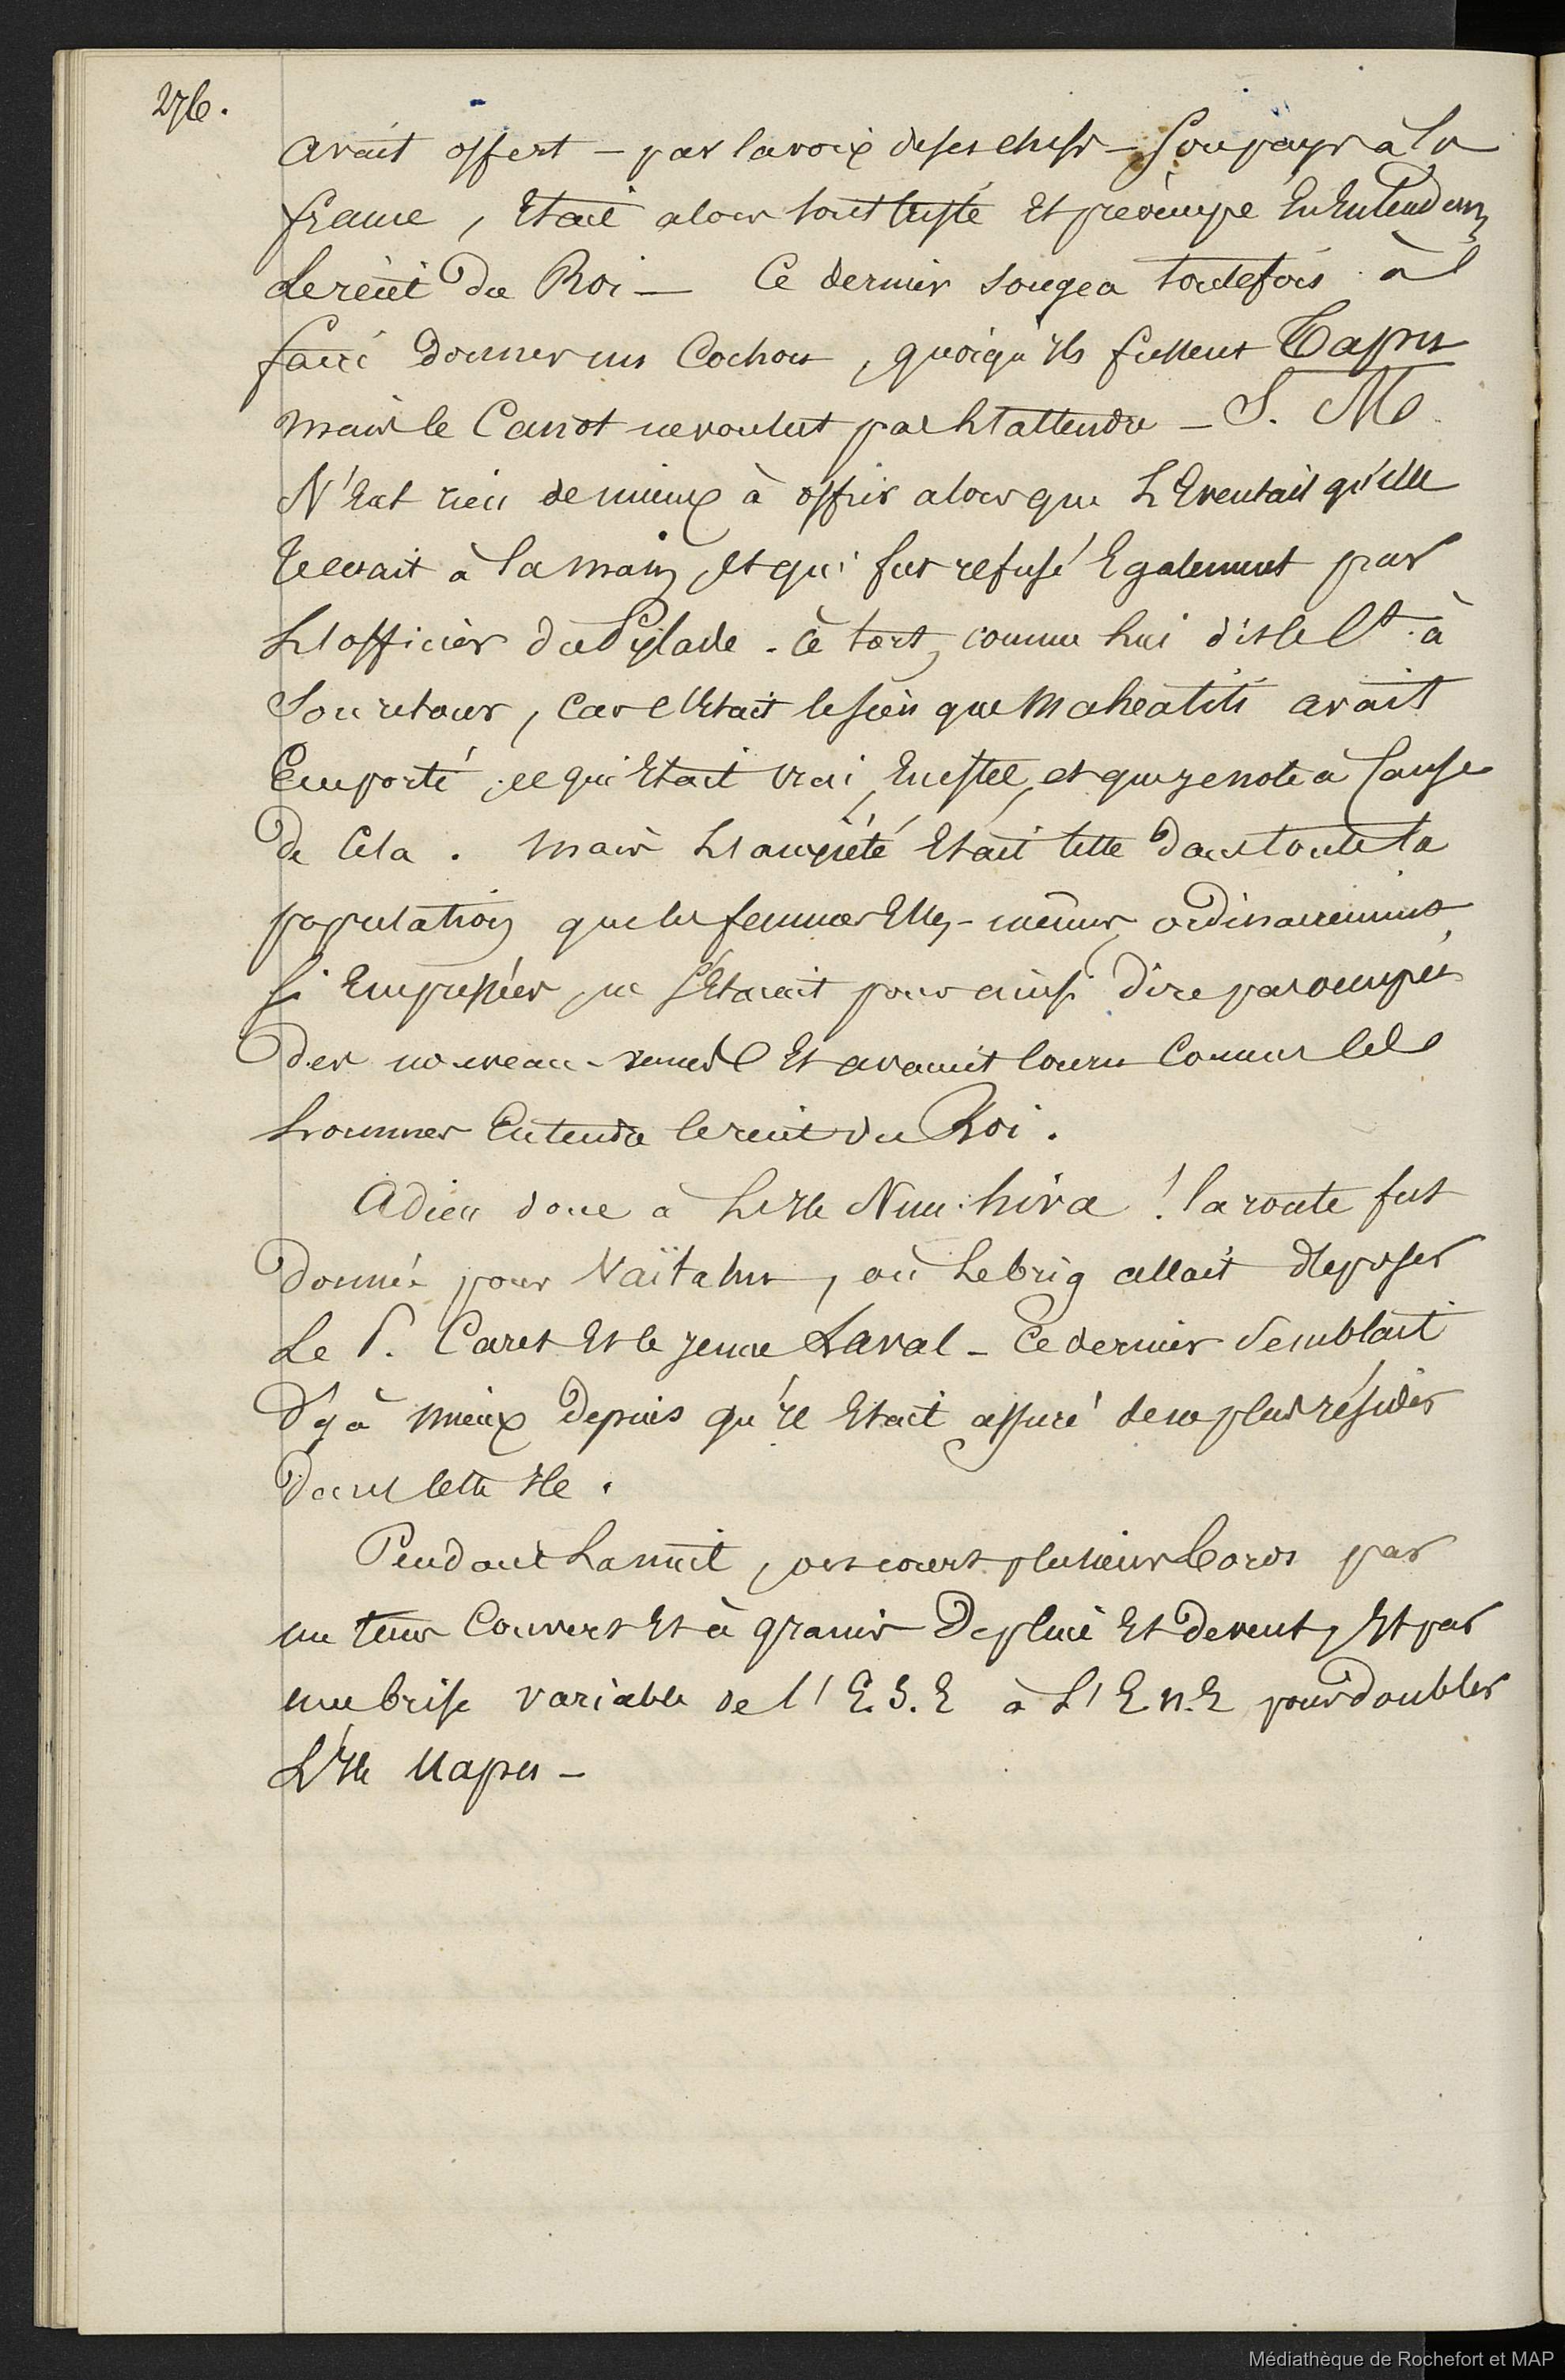 276.
avait offert - par la voix de ses chefs - son pays à la
france, Etait alors tout triste Et préoccupé En Entendant
le récit du Roi - Ce dernier songea toutefois à
faire donner un Cochon, quoiqu'ils fussent Tapus
mais le Canot ne voulut pas L'attendre - S. M.
N'Eut rien de mieux à offrir alors que L'Eventail qu'elle
tenait à la main, Et qui fut refusé Egalement par
L'officier du Pylade. à tort, comme lui dit le Ct. à
son retour, car c'Etait le sien que Maheatité avait
Emporté, ce qui Etait vrai, En effet, et que je note à Cause
de Cela. mais L'anxiété Etait telle dans toute la
population que les femmes Elles-mêmes, ordinairement
si Empressées, ne s'Etaient pour ainsi dire pas occupées
des nouveau-venus Et avaient couru comme les
hommes Entendre le récit du Roi.
Adieu donc à L'Ile Nuu-hiva ! la route fut
donnée pour Vaïtahu, où Le brig allait déposer
Le P. Caret Et le jeune Laval - Ce dernier semblait
d'jà mieux depuis qu'il Etait assuré de ne plus résider
dans cette Ile.
Pendant La nuit, on court plusieurs bords par
un tems Couvert Et à grains De pluie Et de vent, Et par
une brise variable de l'E.S.E à L'E.n.E pour doubler
L'Ile Uapu -
Médiathèque de Rochefort et MAP